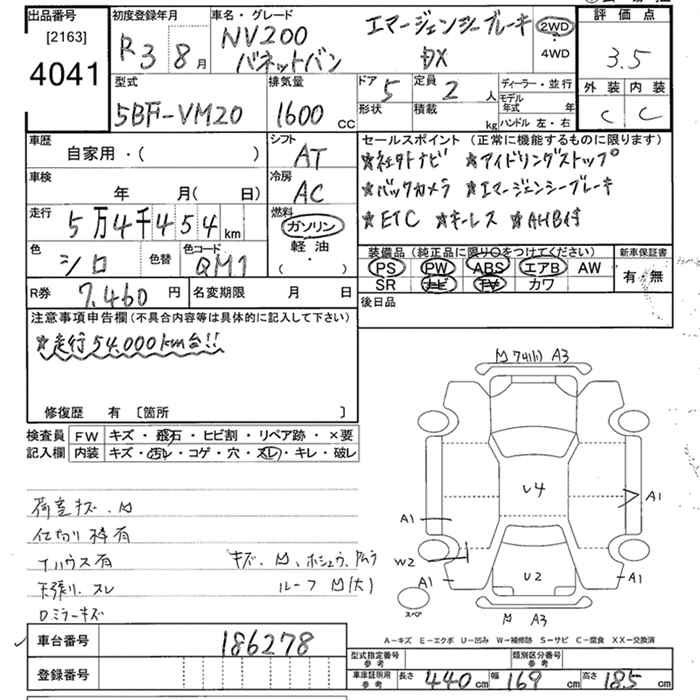 出品番号
[2163]
4041
初度登録年月
R3 8月
車名・グレード
NV200 エマージェンシーブレーキ
バネットバン DX
2WD
4WD
評価点
3.5
外装 内装
C C
型式
5BF-VM20
排気量
1600 cc
ドア 5
形状
定員 2 人
積載 kg
ディーラー・並行
モデル年式 年
ハンドル 左・右
車歴
自家用・( )
シフト
AT
車検
年 月( 日)
冷房
AC
走行
5万4千454km
燃料
ガソリン
軽油
・( )
色
シロ
色替
色コード
QM1
セールスポイント (正常に機能するものに限ります)
★社外ナビ ★アイドリングストップ
★バックカメラ ★エマージェンシーブレーキ
★ETC ★キーレス ★AHB付
装備品 (純正品に限り○をつけてください)
PS PW ABS エアB AW
SR ナビ TV カワ
新車保証書
有・無
R券 7,460円
名変期限 月 日
後日品
注意事項申告欄 (不具合内容等は具体的に記入して下さい)
★走行54,000km台!!
修復歴 有 [箇所 ]
検査員記入欄
FW キズ・飛石・ヒビ割・リペア跡・×要
内装 キズ・汚レ・コゲ・穴・スレ・キレ・破レ
荷室キズ・M
仕切り枠有
Tハウス有 キズ、M、ホシュウ、ムラ
天張り、スレ ルーフM(大)
Dミラーキズ
A3
U4
A1
A1
W2
A1
U2
A1
スペア
M A3
A-キズ E-エクボ U-凹み W-補修跡 S-サビ C-腐食 XX-交換済
車台番号 186278
登録番号
型式指定番号 参考
類別区分番号 参考
車庫証明用 参考 長さ 440cm 幅 169cm 高さ 185cm